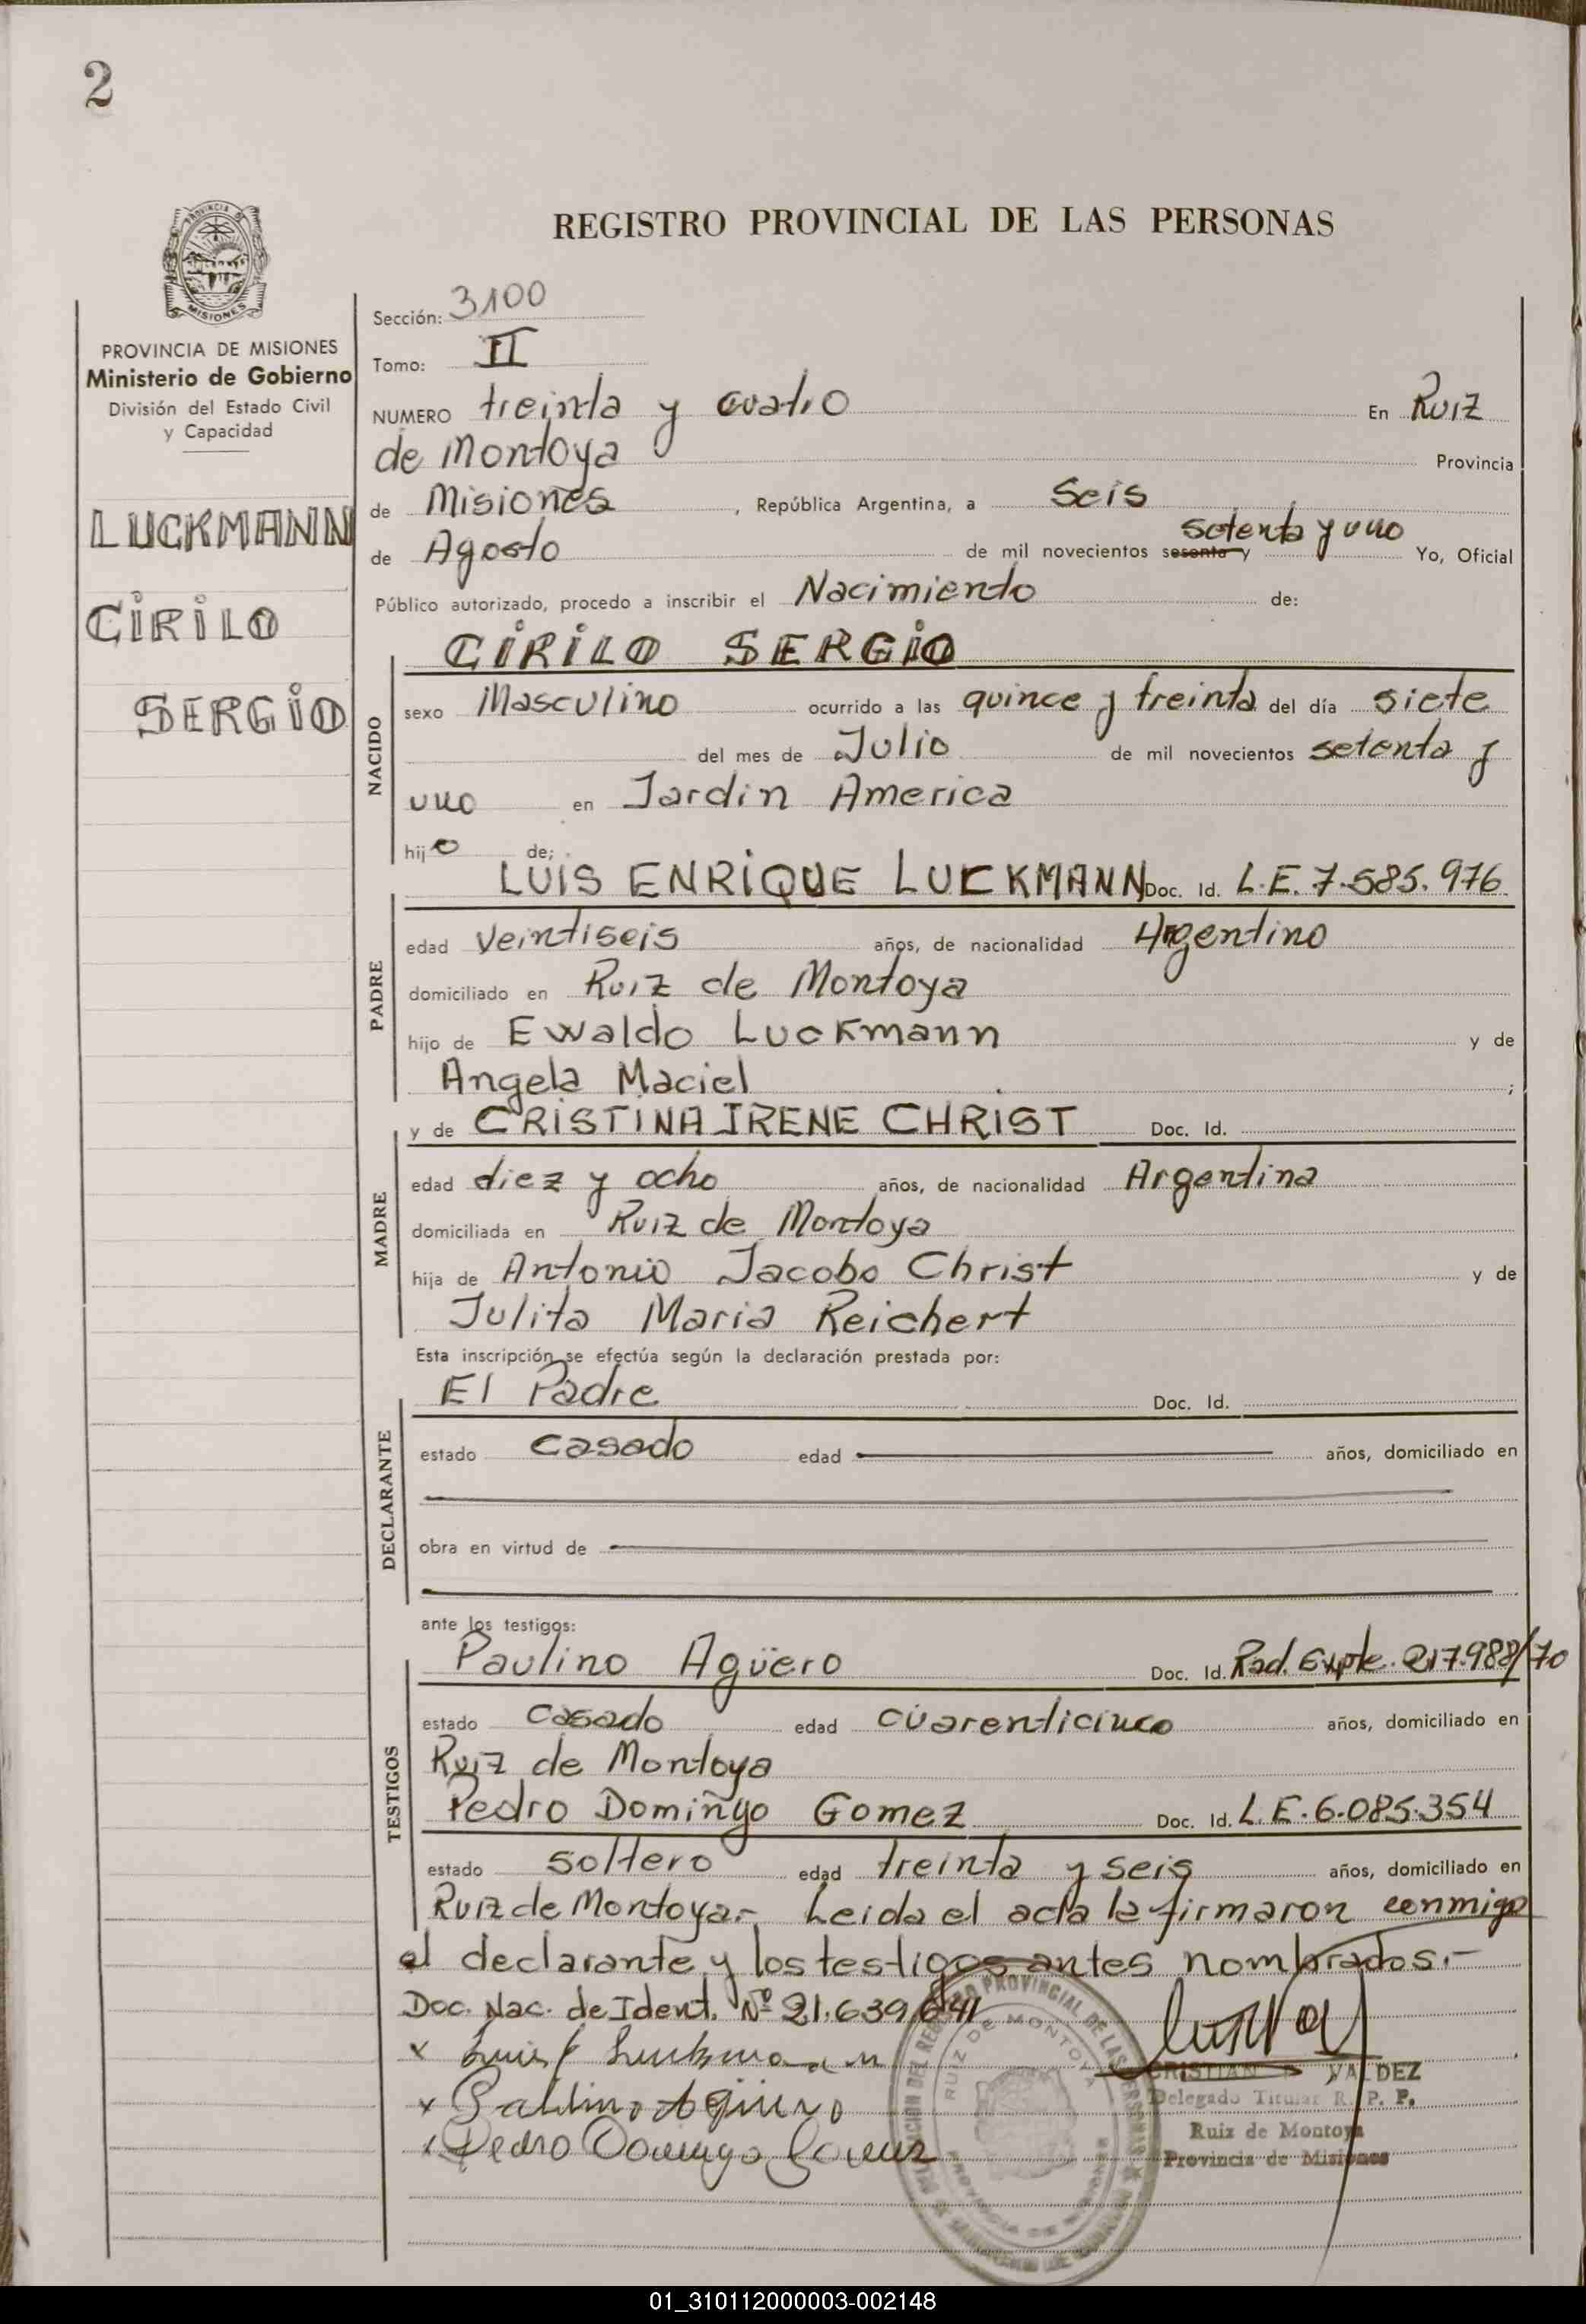 2
REGISTRO PROVINCIAL DE LAS PERSONAS
PROVINCIA DE MISIONES
Ministerio de Gobierno
División del Estado Civil
y Capacidad
LUCKMANN
CIRILO
SERGIO
Sección: 3100
Tomo: II
NUMERO treinta y cuatro En Ruiz
de Montoya Provincia
de Misiones, República Argentina, a Seis
de Agosto de mil novecientos sesenta y setenta y uno Yo, Oficial
Público autorizado, procedo a inscribir el Nacimiento de:
CIRILO SERGIO
NACIDO
sexo Masculino ocurrido a las quince y treinta del día siete
del mes de Julio de mil novecientos setenta y
uno en Jardin America
hijo de;
LUIS ENRIQUE LUCKMANN Doc. Id. L.E. 7.585.976
PADRE
edad veintiseis años, de nacionalidad Argentino
domiciliado en Ruiz de Montoya
hijo de Ewaldo Luckmann y de
Angela Maciel ;
y de CRISTINA IRENE CHRIST Doc. Id.
MADRE
edad diez y ocho años, de nacionalidad Argentina
domiciliada en Ruiz de Montoya
hija de Antonio Jacobo Christ y de
Julita Maria Reichert
Esta inscripción se efectúa según la declaración prestada por:
El Padre Doc. Id.
DECLARANTE
estado casado edad años, domiciliado en
obra en virtud de
ante los testigos:
Paulino Agüero Doc. Id. Rad. Expte. 217.988/70
TESTIGOS
estado casado edad cuarenticinco años, domiciliado en
Ruiz de Montoya
Pedro Domingo Gomez Doc. Id. L.E. 6.085.354
estado soltero edad treinta y seis años, domiciliado en
Ruiz de Montoya.- Leida el acta la firmaron conmigo
el declarante y los testigos antes nombrados.-
Doc. Nac. de Ident. Nº 21.639.641
x Luis E Luckmann
x Paulino Agüero
x Pedro Domingo Gomez
RUIZ DE MONTOYA
CRISTIAN VALDEZ
Delegado Titular R. P. P.
Ruiz de Montoya
Provincia de Misiones
01_310112000003-002148